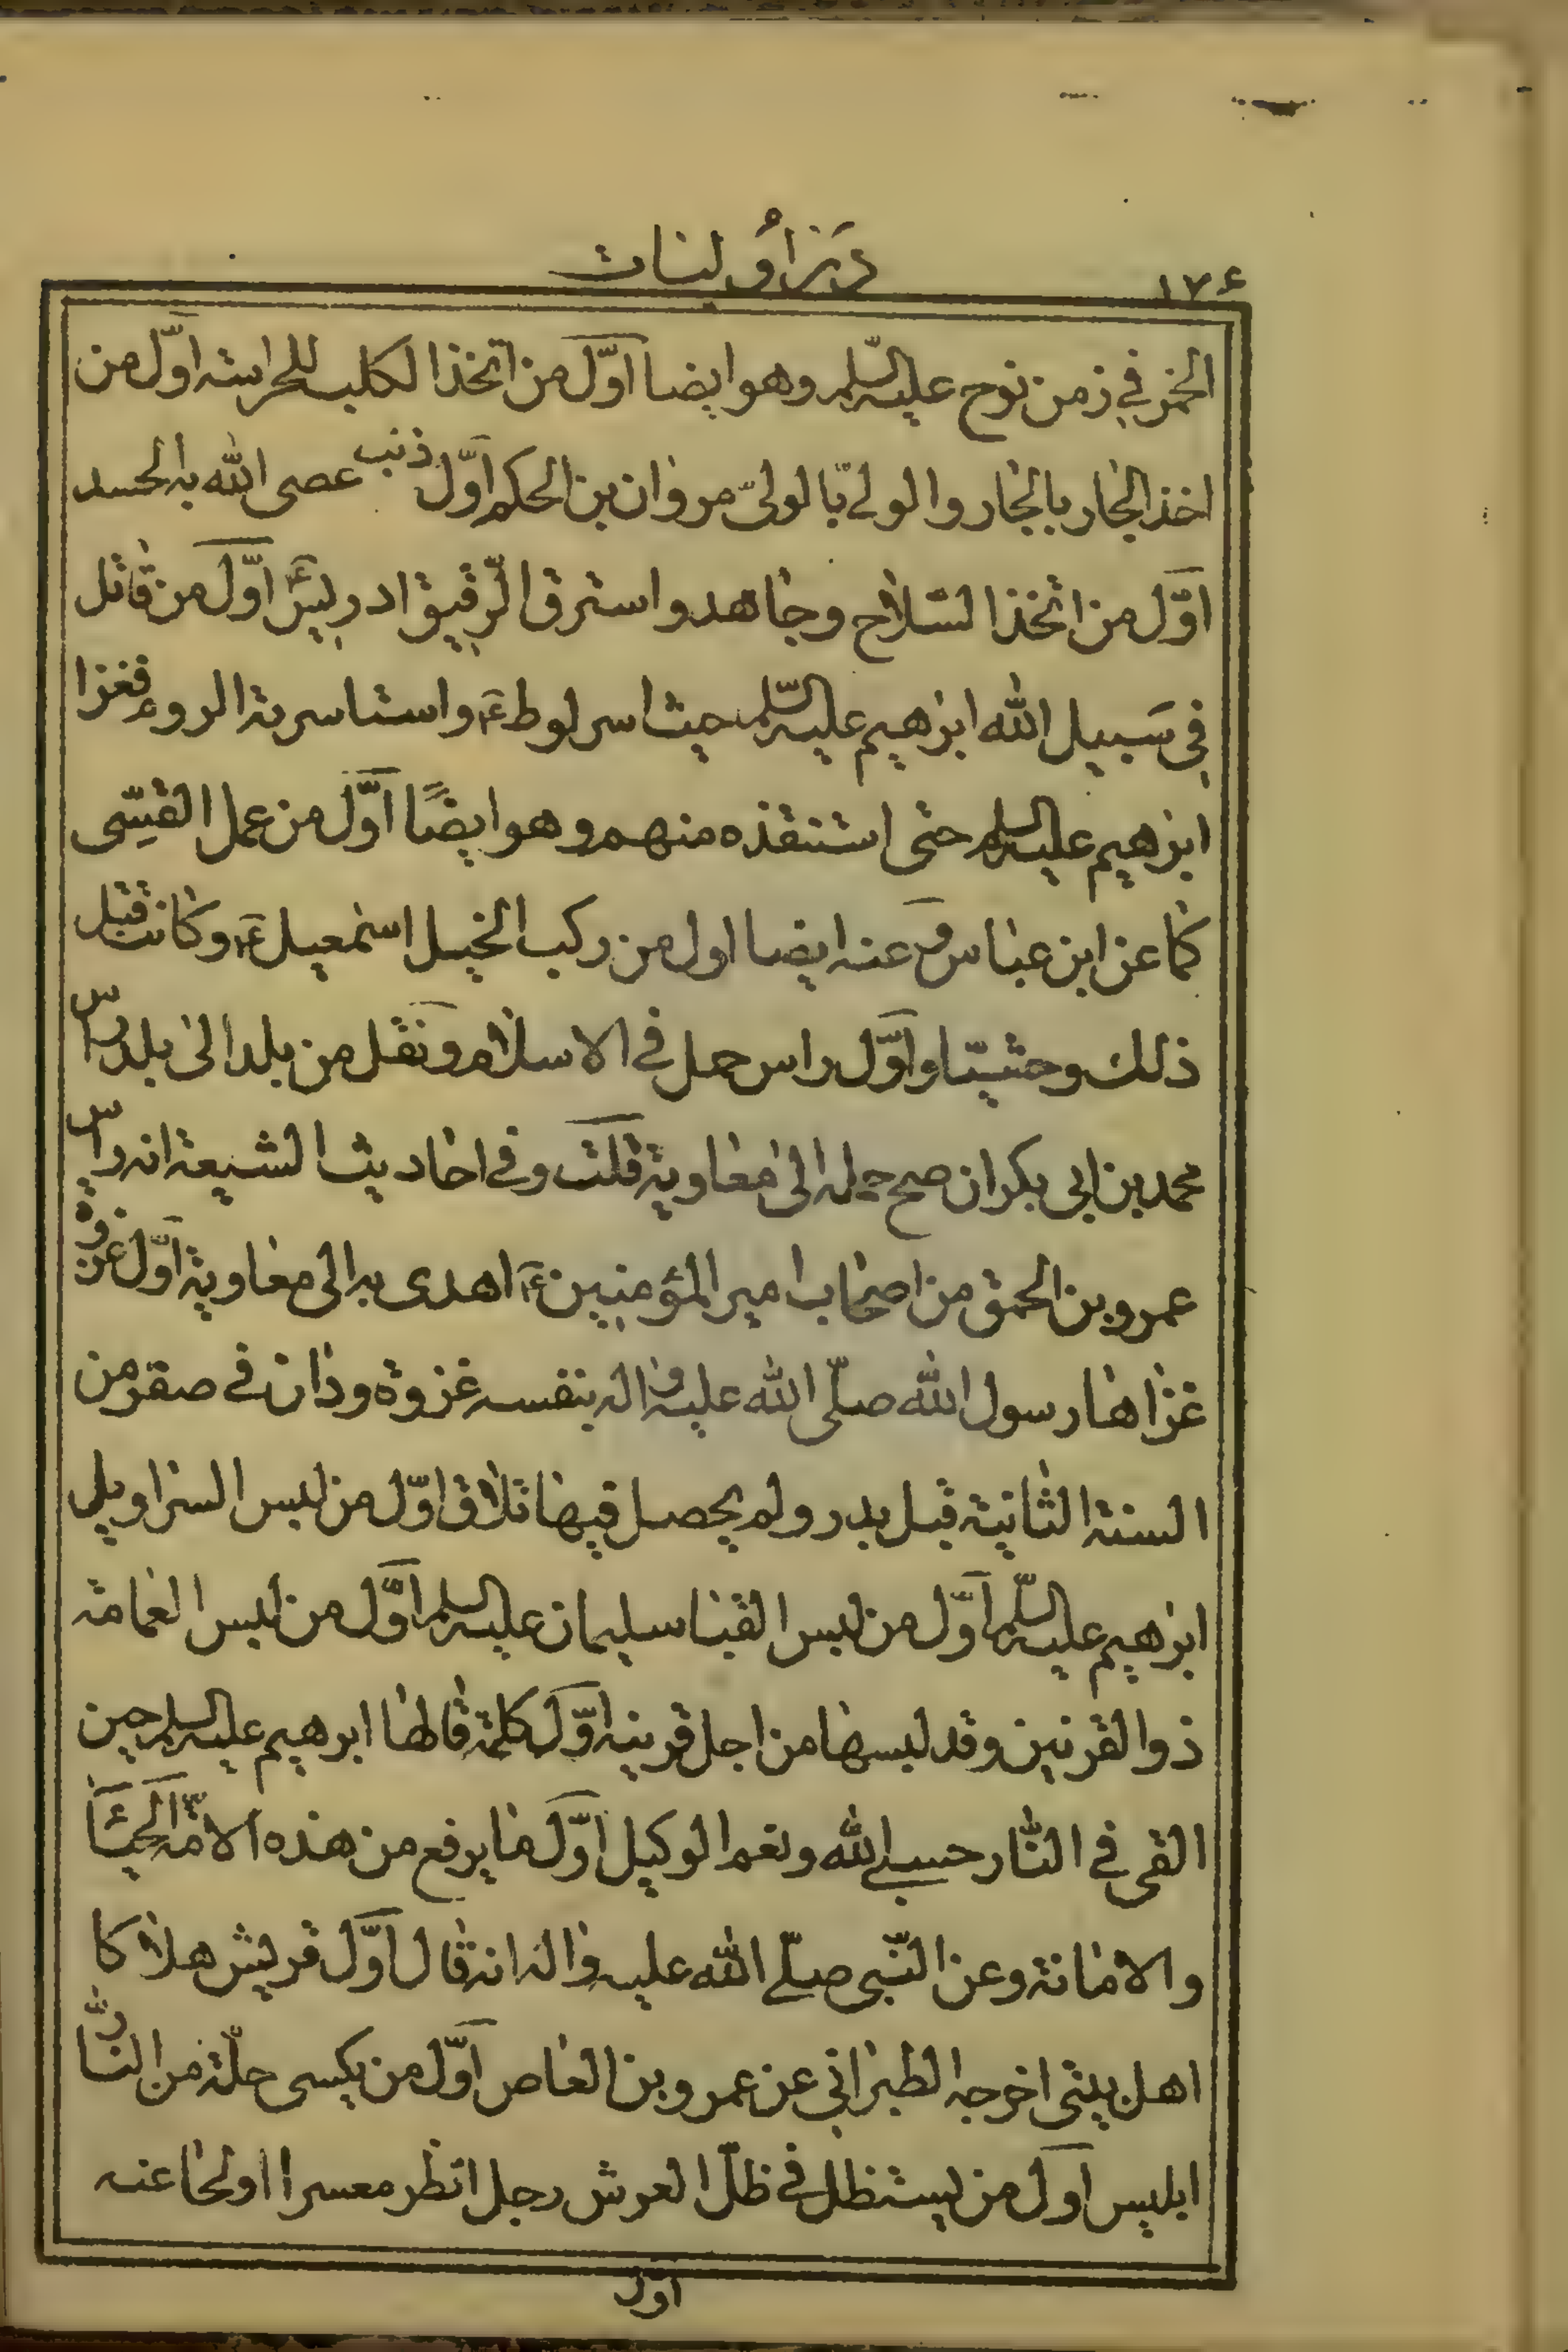 در اوليات
۱۷۶
الخمر في زمن نوح عليه السّلم وهو ايضا اوّل من اتّخذ الكلب للحراسة اوّل من
اخذ الجار بالجار والولي بالوليّ مروان بن الحكم اوّل ذنب عصى الله به الحسد
اوّل من اتّخذ السّلاح وجاهد واسترق الرّقيق ادريس ع اوّل من قاتل
في سَبيل الله ابرهيم عليه السّلم حيث اسر لوط ع واستاسرته الروم فغزا
ابرهيم عليه السلم حتى استنقذه منهم وهو ايضًا اوّل من عمل القِسّى
كما عن ابن عباس و عنه ايضا اول من ركب الخيل اسمعيل ع وكانت قبل
ذلك وحشيّا واوّل راس حمل في الاسلام ونقل من بلد الى بلد راس
محمد بن ابى بكر ان صح حمله الى معاوية قلت وفي احاديث الشيعة انه راس
عمرو بن الحمق من اصحاب امير المؤمنين ع اهدى به الى معاوية اوّل غزوة
غزاها رسول الله صلّى الله عليه واله بنفسه غزوة ودان في صفر من
السنة الثانية قبل بدر ولم يحصل فيها تلاق اوّل من لبس السراويل
ابرهيم عليه السّلم اوّل من لبس القبا سليمان عليه السلم اوّل من لبس العمامة
ذو القرنين وقد لبسها من اجل قرينه اوّل كلمة قالها ابرهيم عليه السلم حين
القى في النّار حسبي الله ونعم الوكيل اوّل ما يرفع من هذه الامّة الحياء
والامانة وعن النّبى صلّى الله عليه واله انه قال اوّل قريش هلاكا
اهل بيتى اخرجه الطبراني عن عمرو بن العاص اوّل من يكسى حلّة من النّار
ابليس اوّل من يستظل في ظلّ العرش رجل انظر معسرا او محا عنه
اوّل